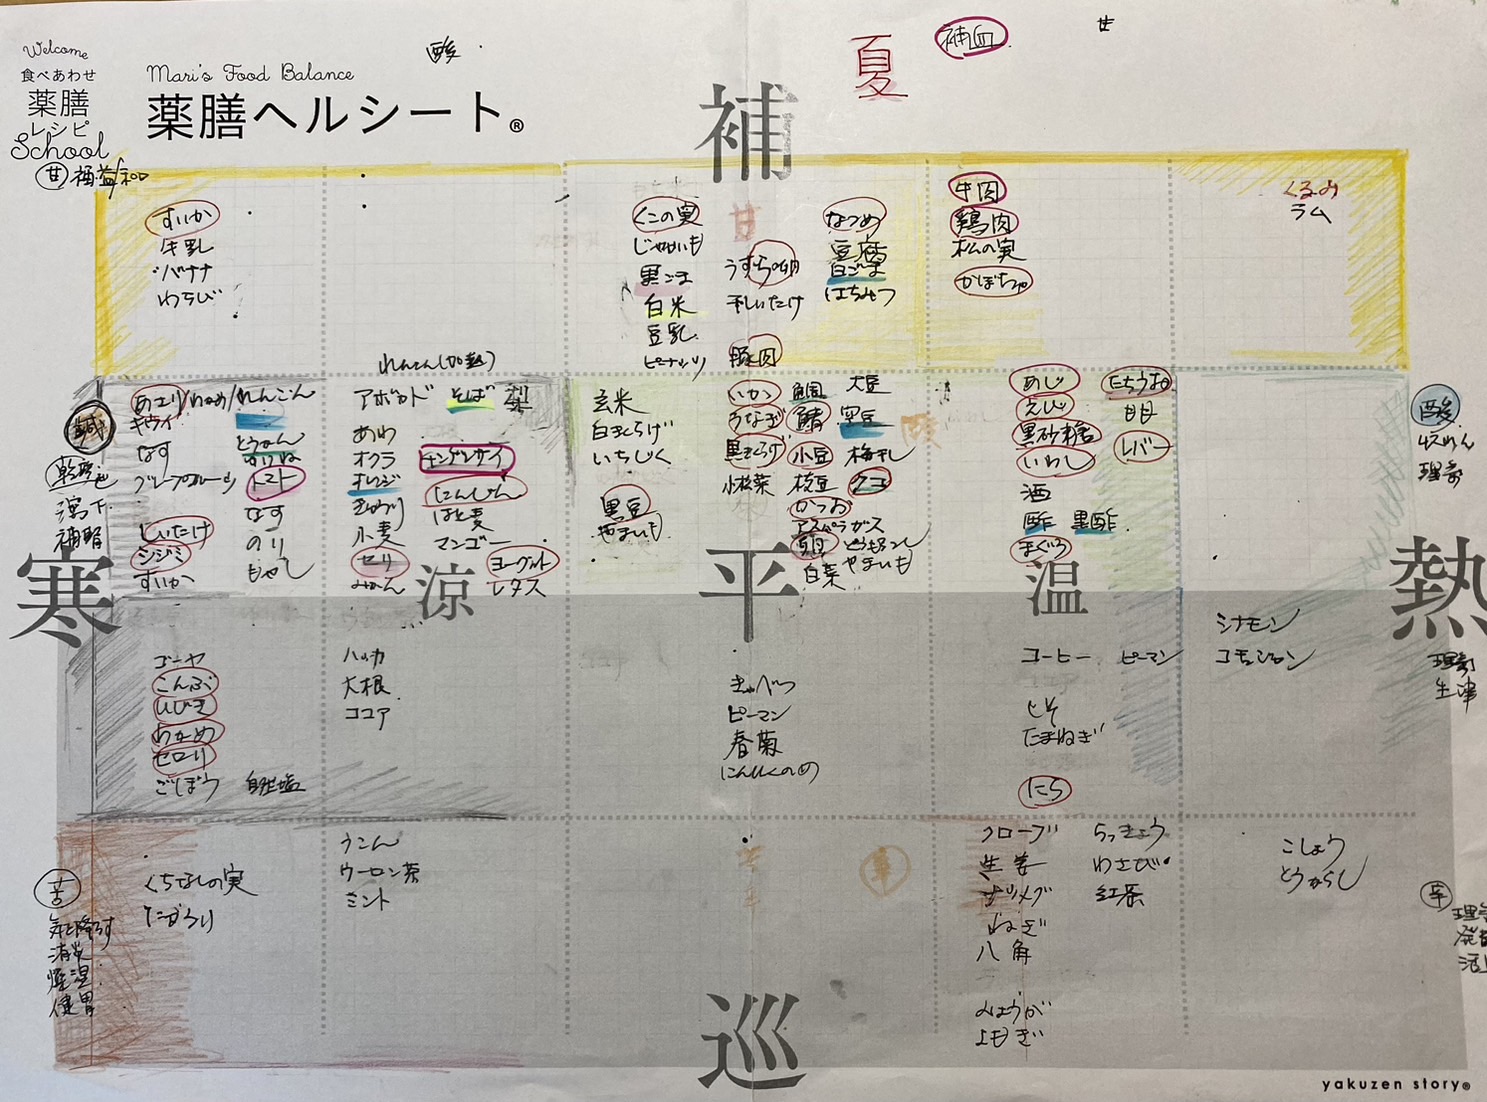 Welcome
食べあわせ
薬膳
レシピ
School
Mari's Food Balance
薬膳ヘルシート®
酸
夏
補血
甘
補
甘 補益/和
すいか
牛乳
バナナ
わらび
くこの実
じゃがいも
黒ごま
白米
豆乳
ピーナッツ
甘
うずらの卵
干しいたけ
豚肉
なつめ
豆腐
白ごま
はちみつ
牛肉
鶏肉
松の実
かぼちゃ
くるみ
ラム
れんこん(加熱)
鹹
瀉下
あさり/わかめ/れんこん
キウイ
なす
グレープフルーツ
しいたけ
シジミ
すいか
とうがん
トマト
なす
のり
もやし
アボカド
そば
梨
あわ
オクラ
オレンジ
きゅうり
小麦
セリ
みかん
チンゲンサイ
にんじん
はと麦
マンゴー
ヨーグルト
レタス
玄米
白きくらげ
いちじく
黒豆
やまいも
いか
うなぎ
黒きくらげ
小松菜
鯛
大豆
小豆
空豆
梅干し
枝豆
クコ
かつお
アスパラガス
卵
とうもろこし
白菜
やまいも
酸
あじ
えび
黒砂糖
いわし
酒
酢
黒酢
まぐろ
たちうお
レバー
酸
収れん
理気
寒
涼
平
温
熱
ゴーヤ
こんぶ
ひじき
わかめ
セロリ
ごぼう
自然塩
ハッカ
大根
ココア
きゃべつ
ピーマン
春菊
にんにくのめ
コーヒー
ピーマン
しそ
たまねぎ
にら
シナモン
理気
生津
苦
気を降ろす
燥湿
健胃
くちなしの実
うこん
ウーロン茶
ミント
辛
クローブ
生姜
ナツメグ
ねぎ
八角
みょうが
よもぎ
らっきょう
わさび
紅茶
こしょう
とうがらし
辛
巡
yakuzen story®